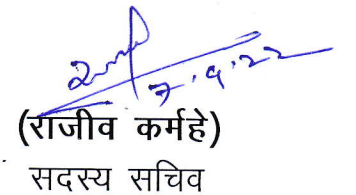 7.9.22
(राजीव कर्महे)
सदस्य सचिव